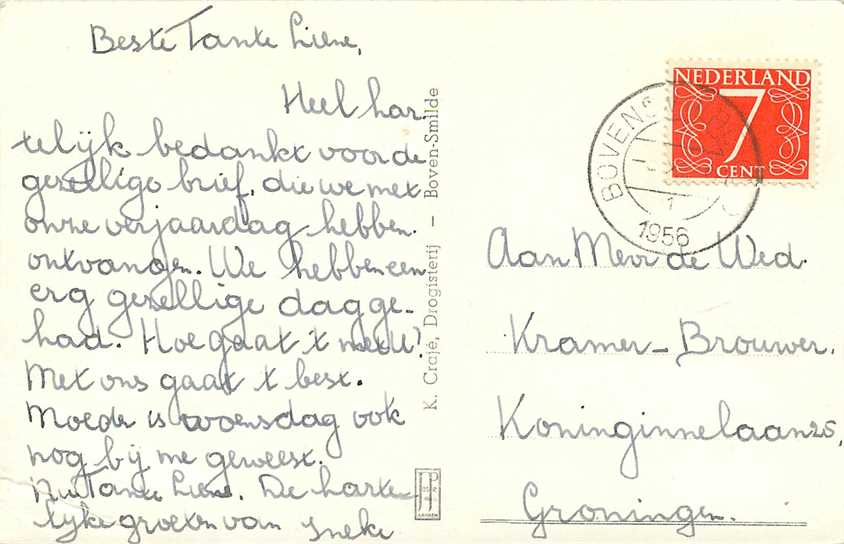 Beste Tante Liene,
Heel har
telijk bedankt voor de
gezellige brief, die we met
onze verjaardag hebben
ontvangen. We hebben een
erg gezellige dag ge-
had. Hoe gaat 't met U?
Met ons gaat 't best.
Moeder is woensdag ook
nog bij me geweest.
Nu Tante Liene. De harte-
lijke groeten van Ineke
K. Crajé, Drogisterij – Boven-Smilde
JP
NEDERLAND
7
CENT
BOVENS
1
1956
Aan Mevr de Wed.
Kramer-Brouwer.
Koninginnelaan 26,
Groningen.